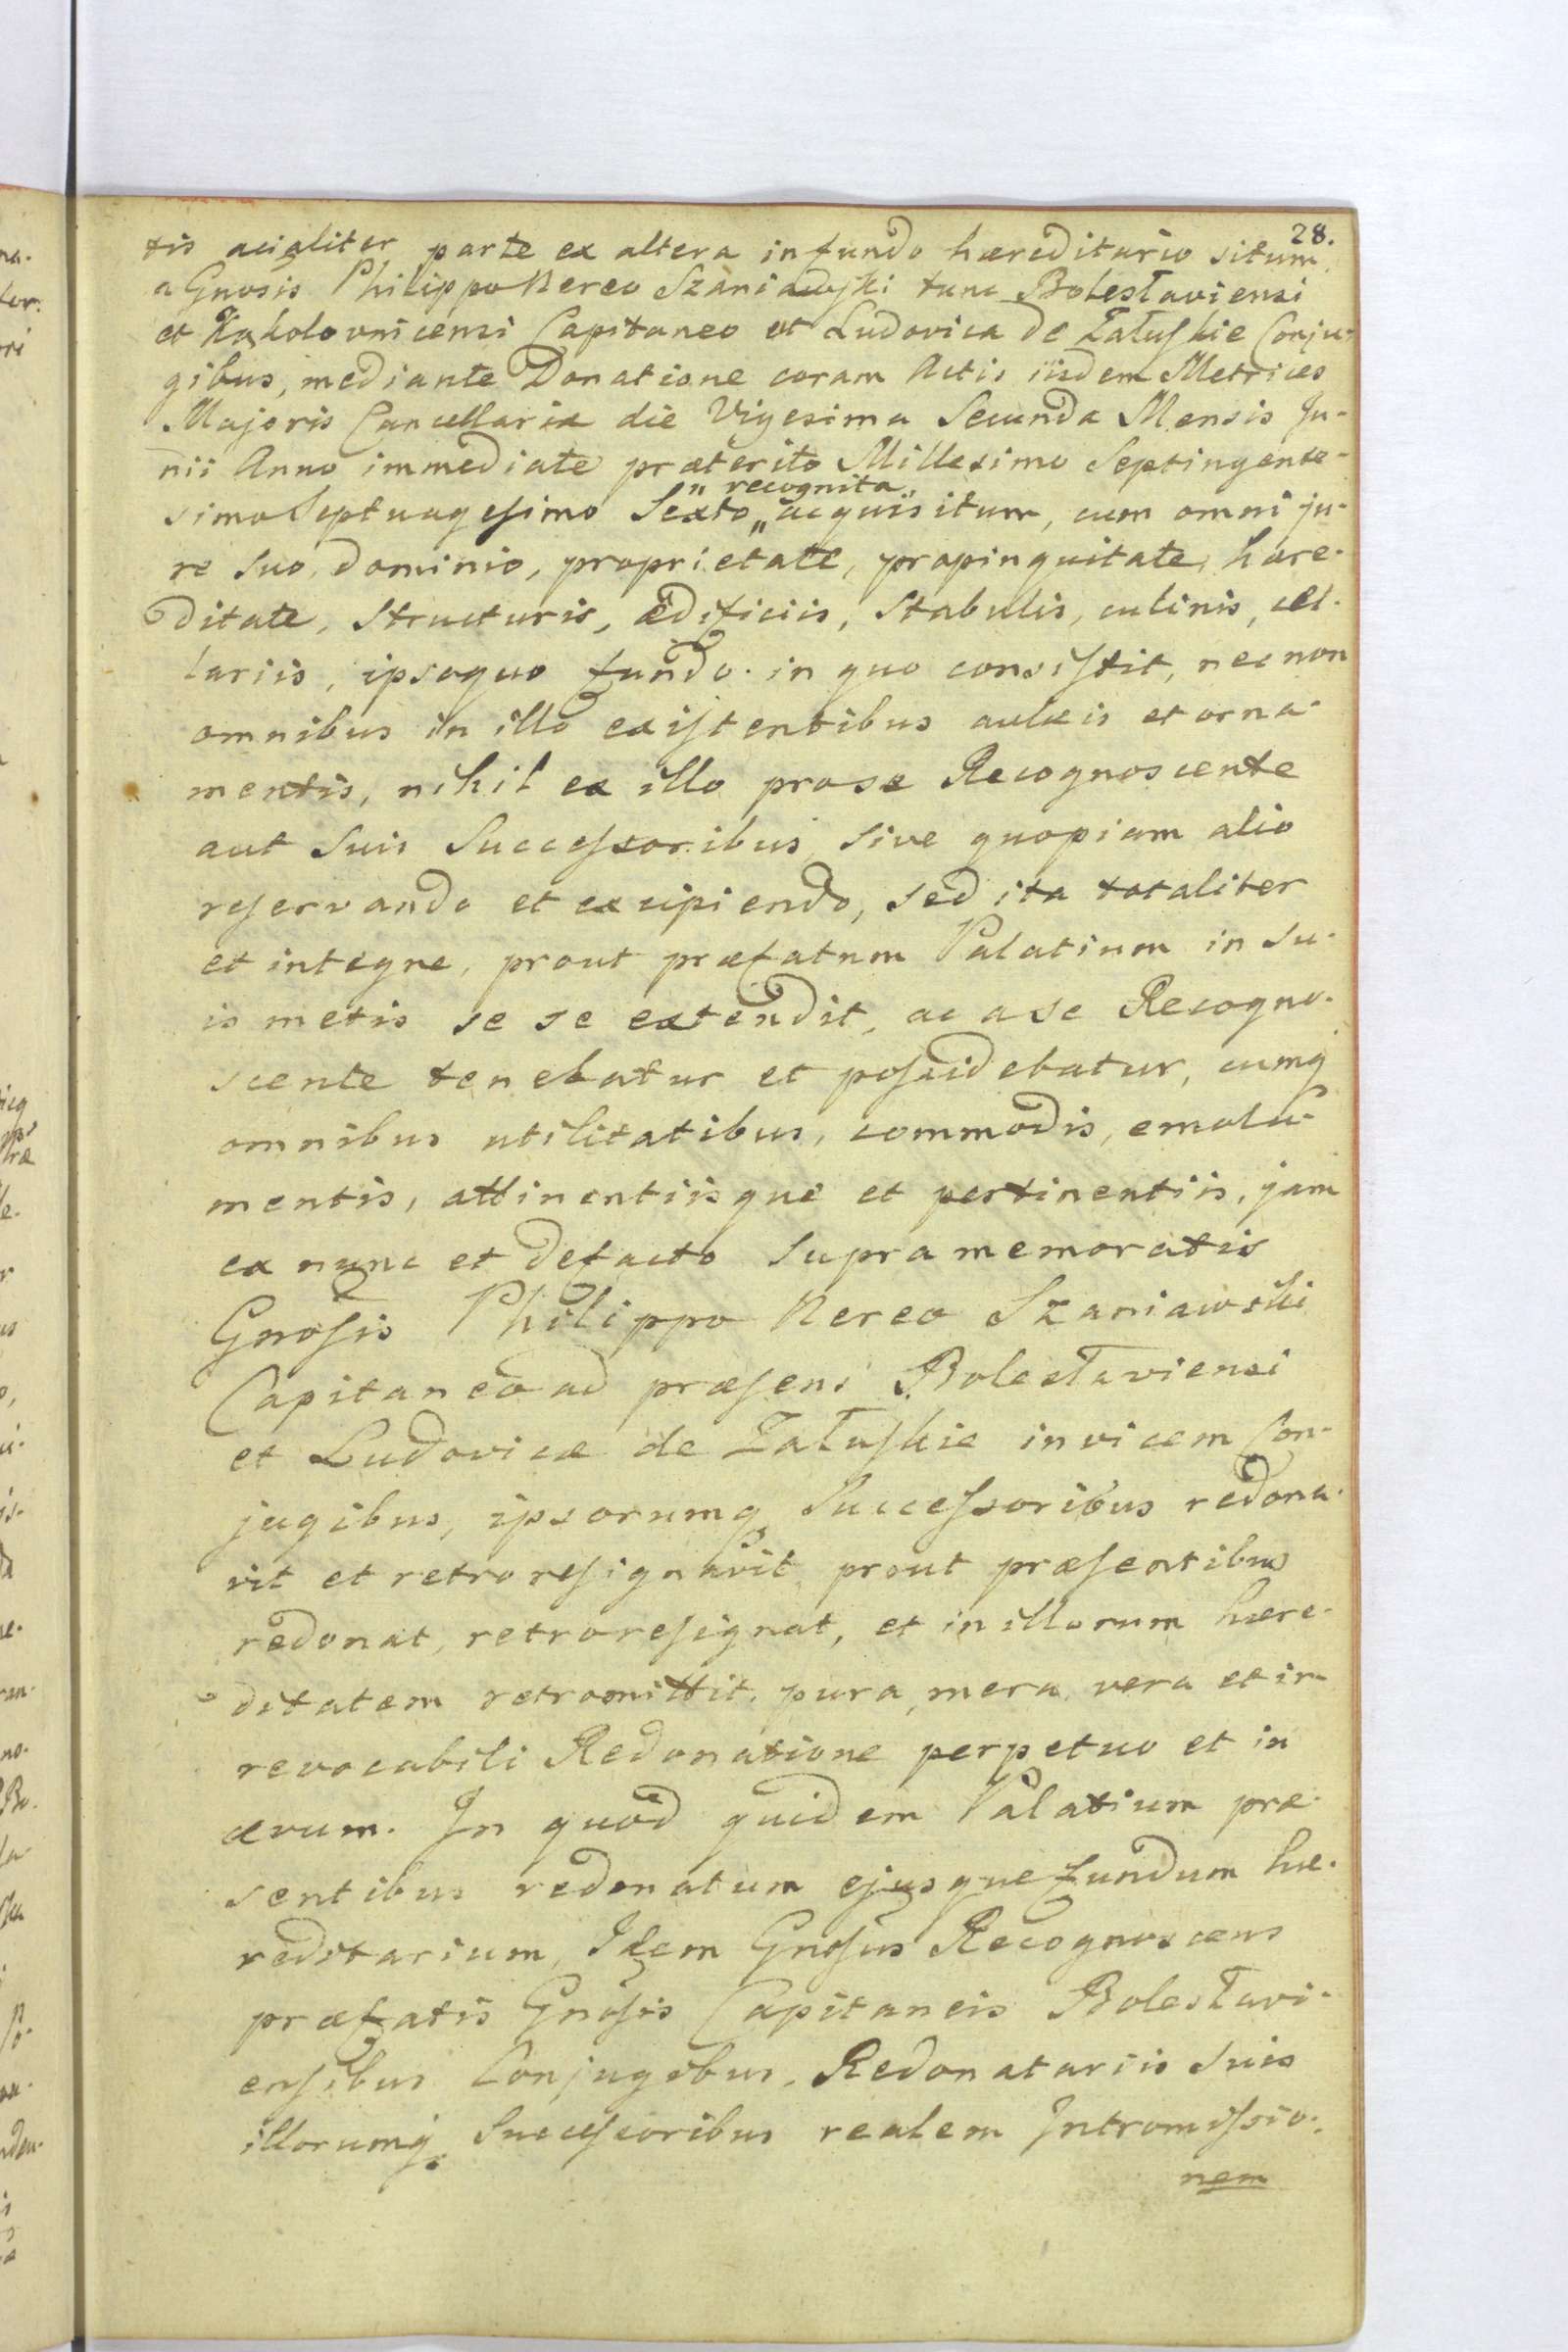 28.
tis acialiter parte ex altera in fundo hæreditario situm
a Gnosis Philippo Nereo Szaniawski tunc Bolesłaviensi
et Kąkolovnicensi Capitaneo et Ludovica de Załuskie Conju-
gibus, mediante Donatione coram Actis iisdem Metrices
Majoris Cancellariæ die Vigesima Secunda Mensis Ju-
nii Anno immediate præterito Millesimo Septingente-
" recognita "
simo Septuagesimo Sexto " acquisitum, cum omni ju-
re suo, dominio, proprietate, propinquitate, hære-
ditate, structuris, ædificiis, stabulis, culinis, cel-
lariis, ipsoque fundo in quo consistit, necnon
omnibus in illo existentibus aulæis et orna-
mentis, nihil ex illo prose Recognoscente
aut suis Successoribus, sive quopiam alio
reservando et excipiendo, sed ita totaliter
et integre, prout præfatum Palatium in su-
is metis se se extendit, ac a se Recogno-
scente tenebatur et possidebatur, cumq
omnibus utilitatibus, commodis, emolu-
mentis, attinentiisque et pertinentiis, jam
ex nunc et defacto supra memoratis
Gnosis Philippo Nereo Szaniawski
Capitaneo ad præsens Bolesłaviensi
et Ludovicæ de Załuskie invicem Con-
jugibus, ipsorumq Successoribus redona-
vit et retroresignavit, prout præsentibus
redonat, retroresignat, et in illorum hære-
ditatem retromittit, pura, mera, vera et ir-
revocabili Redonatione perpetuo et in
ævum. In quod quidem Palatium præ-
sentibus redonatum ejusque fundum hæ-
reditarium, Idem Gnosus Recognoscens
præfatis Gnosis Capitaneis Bolesłavi-
ensibus Conjugibus, Redonatariis suis
illorumq Successoribus realem Intromissio-
nem